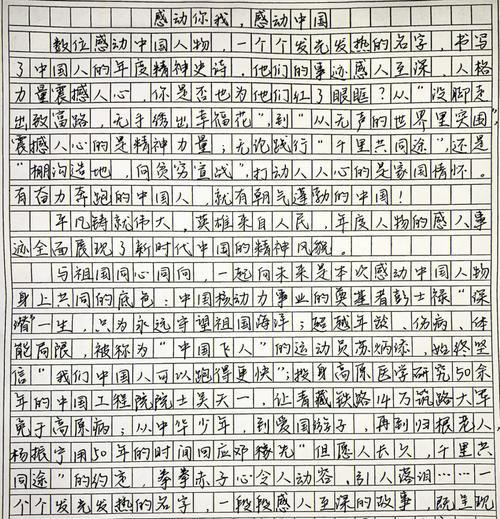 感动你我，感动中国
数位感动中国人物，一个个发光发热的名字，书写
了中国人的年度精神史诗，他们的事迹感人至深，人格
力量震撼人心，你是否也为他们红了眼眶？从“没脚走
出致富路，无手绣出幸福花”，到“从无声的世界里突围”，
震撼人心的是精神力量；无论践行“千里共同途”，还是
“棚沟造地，向贫穷宣战”，打动人人心的是家国情怀。
有奋力奔跑的中国人，就有朝气蓬勃的中国！
平凡铸就伟大，英雄来自人民，年度人物的感人事
迹全面展现了新时代中国的精神风貌。
与祖国同心同向，一起向未来是本次感动中国人物
身上共同的底色：中国核动力事业的奠基者彭士禄“深
潜”一生，只为永远守望祖国海洋；超越年龄、伤病、体
能局限，被称为“中国飞人”的运动员苏炳添，始终坚
信“我们中国人可以跑得更快”；投身高原医学研究50余
年的中国工程院院士吴天一，让青藏铁路14万筑路大军
免于高原病；从中华少年，到爱国游子，再到归根老人，
杨振宁用50年的时间回应邓稼先“但愿人长久，千里共
同途”的约定，拳拳赤子心令人动容，引人落泪……一
个个发光发热的名字，一段段感人至深的故事，既呈现